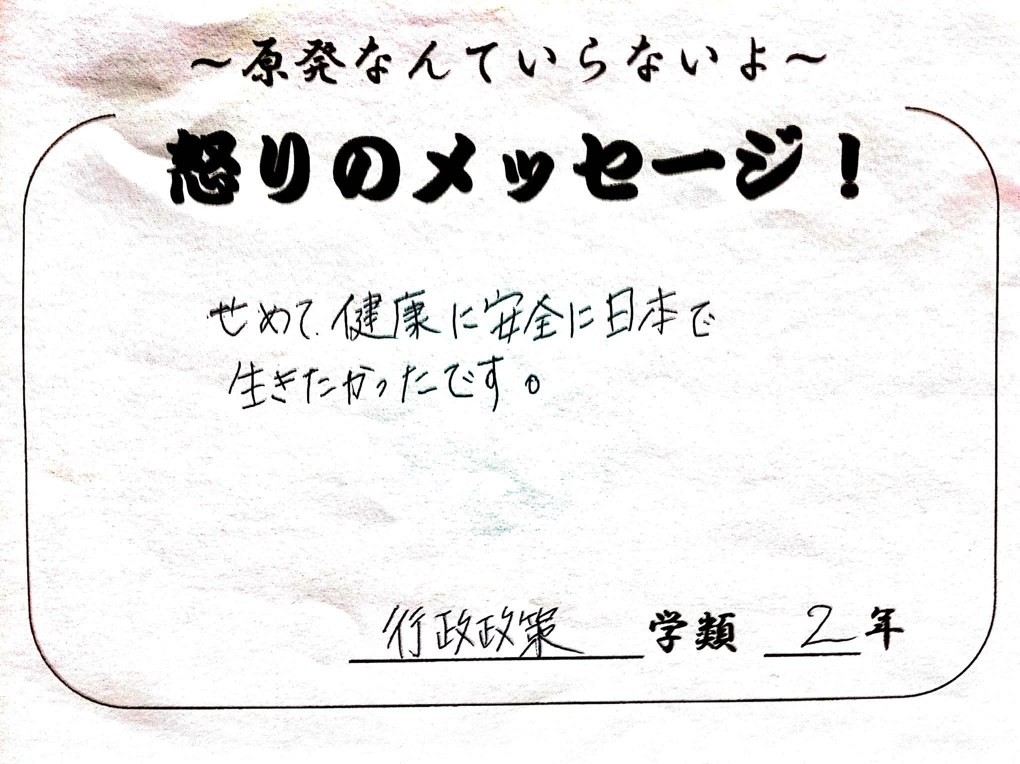 ～原発なんていらないよ～
怒りのメッセージ！
せめて、健康に安全に日本で
生きたかったです。
行政政策学類 2年